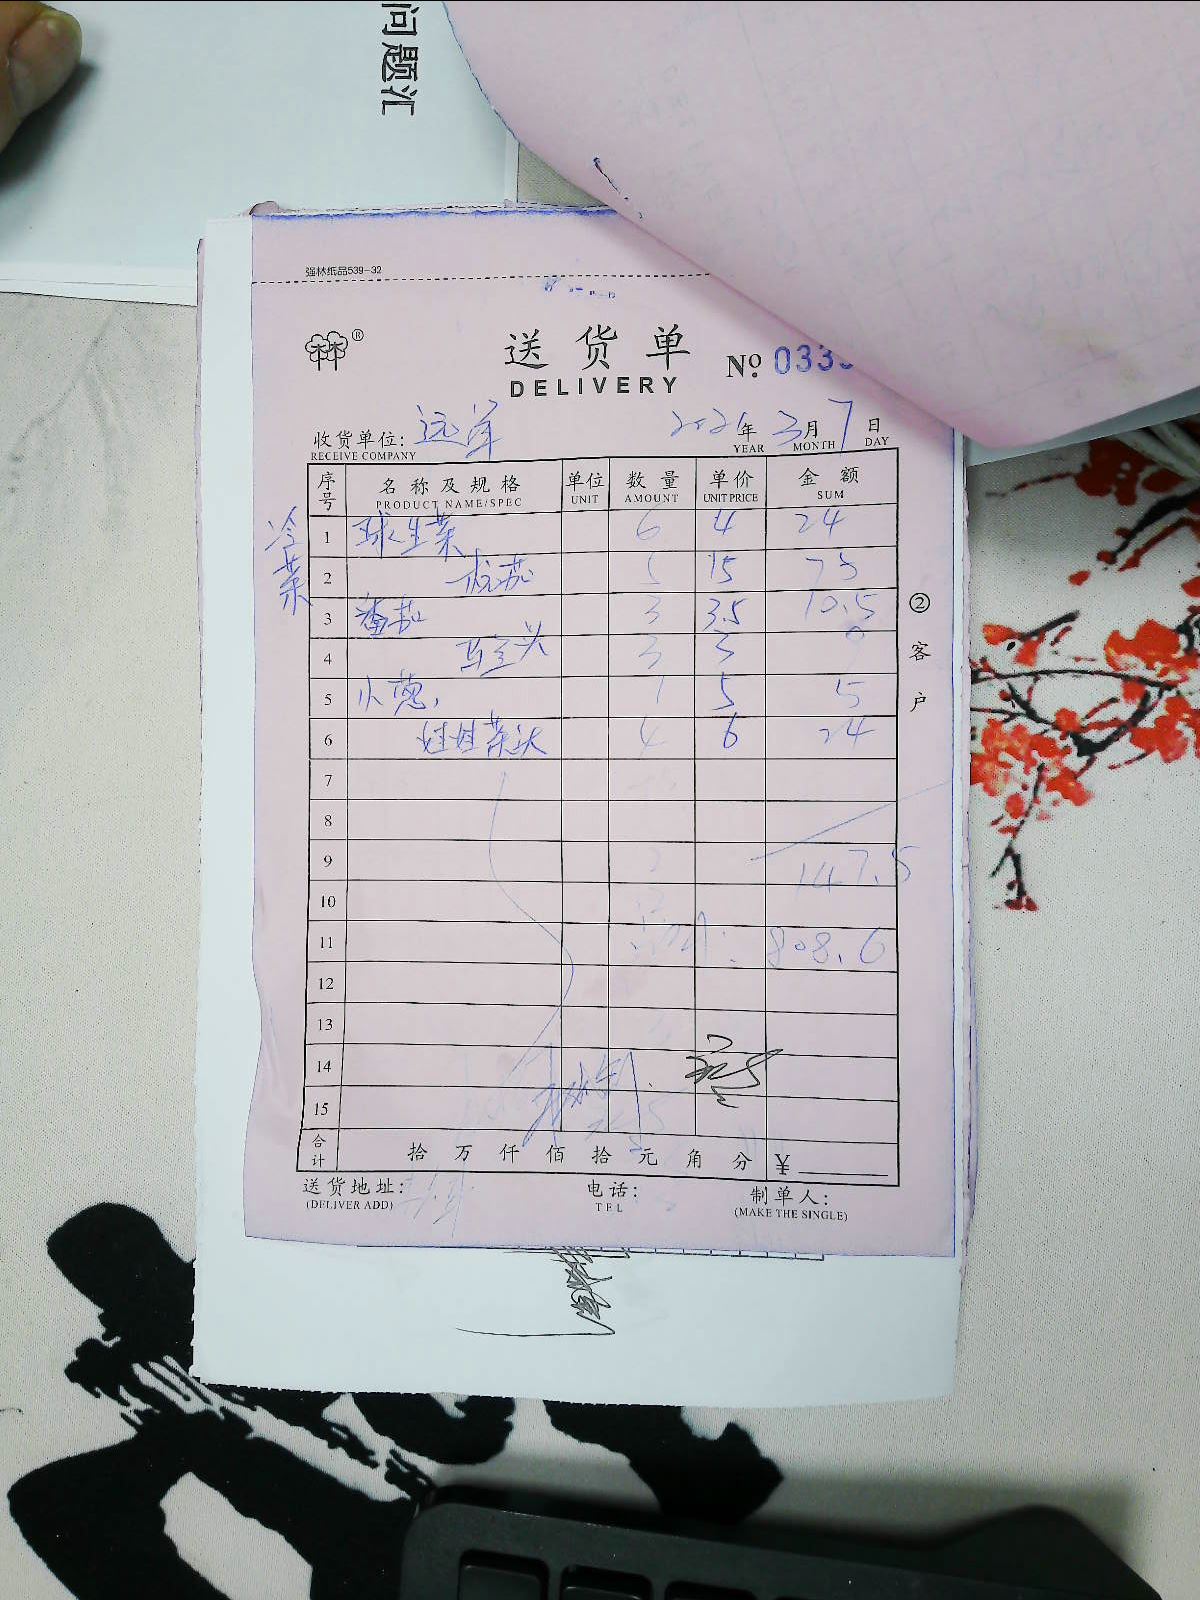 问题汇
强林纸品539-32
林®
送货单
DELIVERY
No. 0333
收货单位: 远洋
RECEIVE COMPANY
2021年3月7日
YEAR MONTH DAY
序号 名称及规格 单位 数量 单价 金额
PRODUCT NAME/SPEC UNIT AMOUNT UNIT PRICE SUM
冷菜
1 球生菜 6 4 24
2 杭茄 5 15 75
3 番茄 3 3.5 10.5
4 马兰头 3 3 9
5 小葱, 1 5 5
6 娃娃菜 4 6 24
7
8
9 147.5
10
11 808.6
12
13
14
15
合计 拾万仟佰拾元角分 ¥
送货地址: 电话: 制单人:
(DELIVER ADD) TEL (MAKE THE SINGLE)
②客户